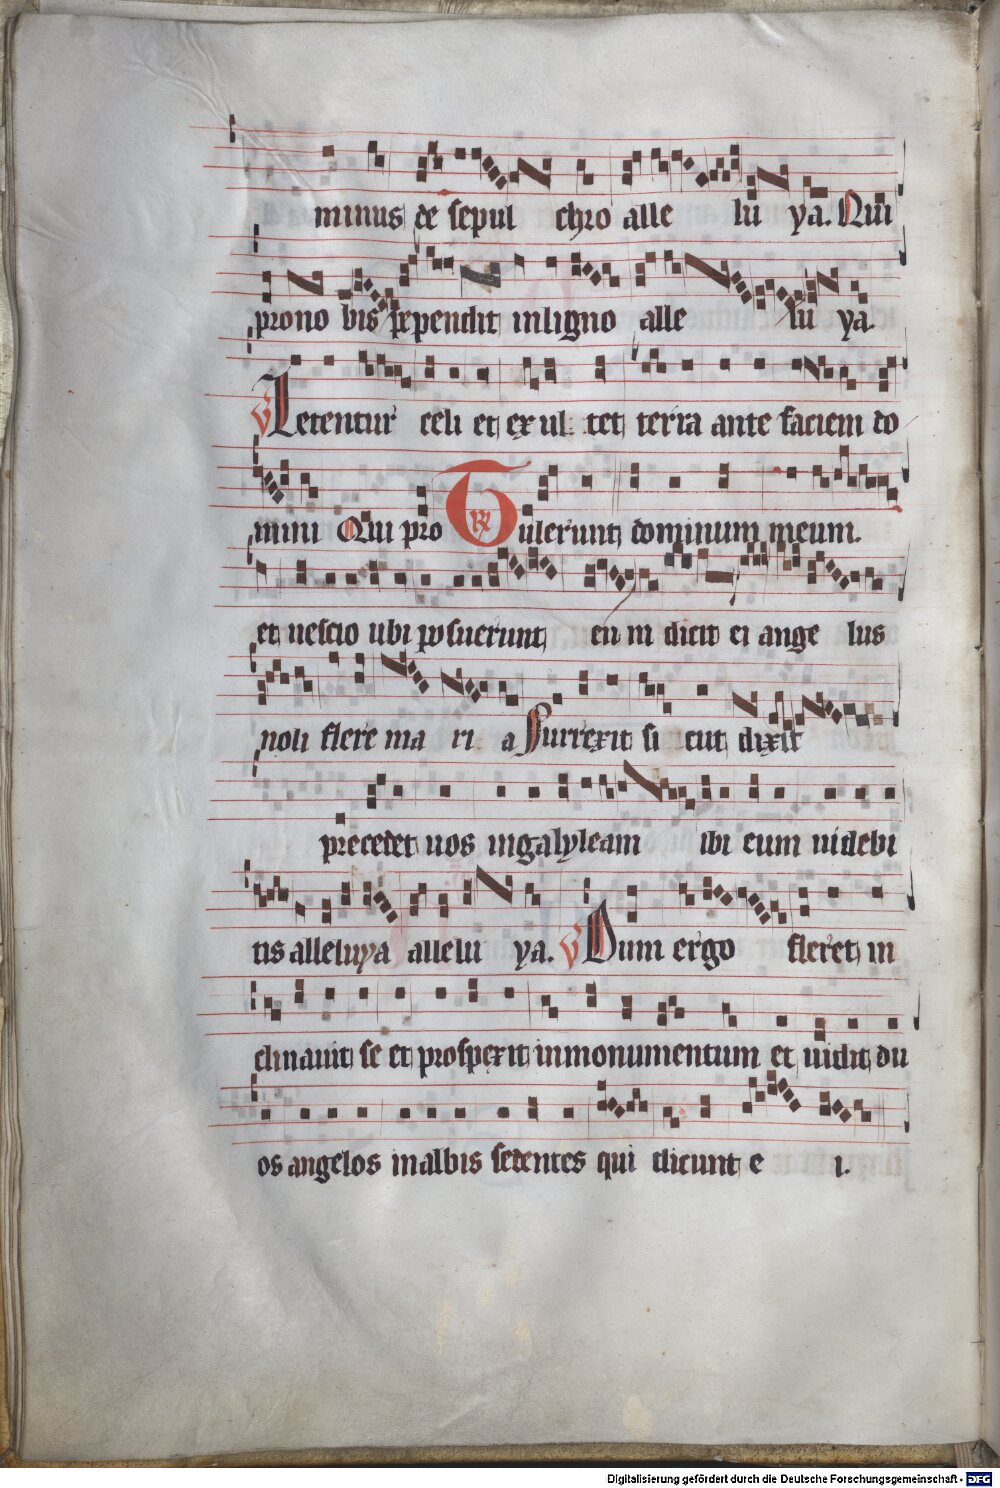 minus de sepul chro alle lu ya. Qui
pro no bis pependit in ligno alle lu ya.
V Letentur celi et ex ul tet terra ante faciem do
mini Qui pro R Tulerunt dominum meum.
et nescio ubi posuerunt eum dicit ei ange lus
noli flere ma ri a Surrexit si cut dixit
precedet uos in galyleam ibi eum uidebi
tis alleluya allelu ya. V Dum ergo fleret in
clinauit se et prospexit in monumentum et uidit du
os angelos in albis sedentes qui dicunt e i.
Digitalisierung gefördert durch die Deutsche Forschungsgemeinschaft - DFG